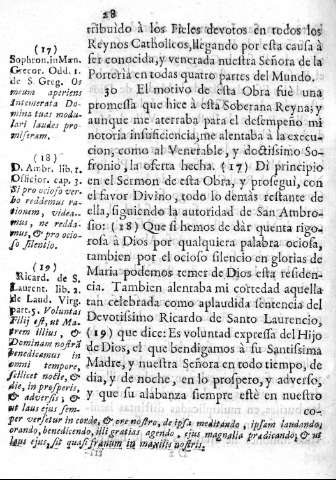 28
tribuido à los Fieles devotos en todos los
Reynos Catholicos, llegando por esta causa à
ser conocida, y venerada nuestra Señora de la
Porteria en todas quatro partes del Mundo.
30 El motivo de esta Obra fuè una
promessa que hice à esta Soberana Reyna; y
aunque me aterraba para el desempeño mi
notoria insuficiencia, me alentaba à la execu-
cion, como al Venerable, y doctissimo So-
fronio, la oferta hecha. (17) Di principio
en el Sermon de esta Obra, y prosegui, con
el favor Divino, todo lo demàs restante de
ella, siguiendo la autoridad de San Ambro-
sio: (18) Que si hemos de dàr quenta rigo-
rosa à Dios por qualquiera palabra ociosa,
tambien por el ocioso silencio en glorias de
Maria podemos temer de Dios esta residen-
cia. Tambien alentaba mi cortedad aquella
tan celebrada como aplaudida sentencia del
Devotissimo Ricardo de Santo Laurencio,
(19) que dice: Es voluntad expressa del Hijo
de Dios, el que bendigamos à su Santissima
Madre, y nuestra Señora en todo tiempo, de
dia, y de noche, en lo prospero, y adverso,
y que su alabanza siempre estè en nuestro
co-
(17)
Sophron. in Man.
Grecor. Odd. 1.
de S. Greg. Os
meum aperiens
Intemerata Do-
mina tuas modu-
lari laudes pro-
miseram.
(18)
D. Ambr. lib. 1.
Officior. cap. 3.
Si pro ocioso ver-
bo reddemus ra-
tionem, videa-
mus, ne redda-
mus, & pro ocio-
so silentio.
(19)
Ricard. de S.
Laurent. lib. 2.
de Laud. Virg.
part. 5. Voluntas
Filij est, ut Ma-
trem illius, &
Dominam nostrã
benedicamus in
omni tempore,
scilicet nocte, &
die, in prosperis,
& adversis; &
ut laus ejus sem-
per versetur in corde, & ore nostro, de ipsa meditando, ipsam laudando,
orando, benedicendo, illi gratias agendo, ejus magnalia prædicando; & ut
laus ejus, sit quasi frænum in maxillis nostris.